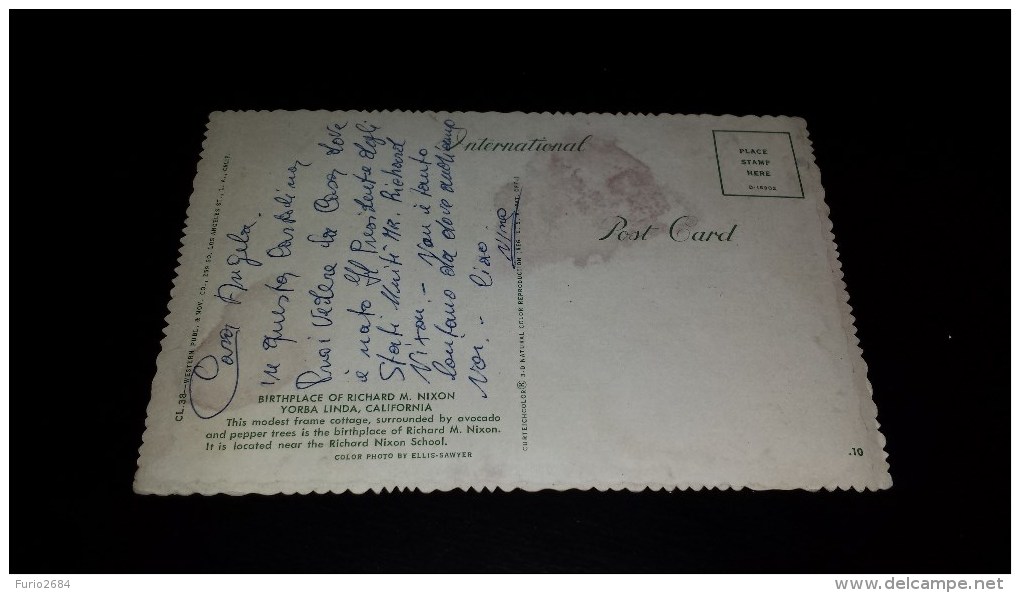 International
Post Card
PLACE
STAMP
HERE
CL. 38—WESTERN PUBL. & NOV. CO., LOS ANGELES ST., L. A., CALIF.
Cara Angela.
in questa cartolina
Puoi vedere la casa dove
è nato Il Presidente degli
Stati Uniti MR. Richard
Nixon. - Non è tanto
lontano da dove abitiamo
noi. - Ciao.
Nino
BIRTHPLACE OF RICHARD M. NIXON
YORBA LINDA, CALIFORNIA
This modest frame cottage, surrounded by avocado
and pepper trees is the birthplace of Richard M. Nixon.
It is located near the Richard Nixon School.
COLOR PHOTO BY ELLIS-SAWYER
CURTEICHCOLOR® 3-D NATURAL COLOR REPRODUCTION
.10
Furio2684
www.delcampe.net